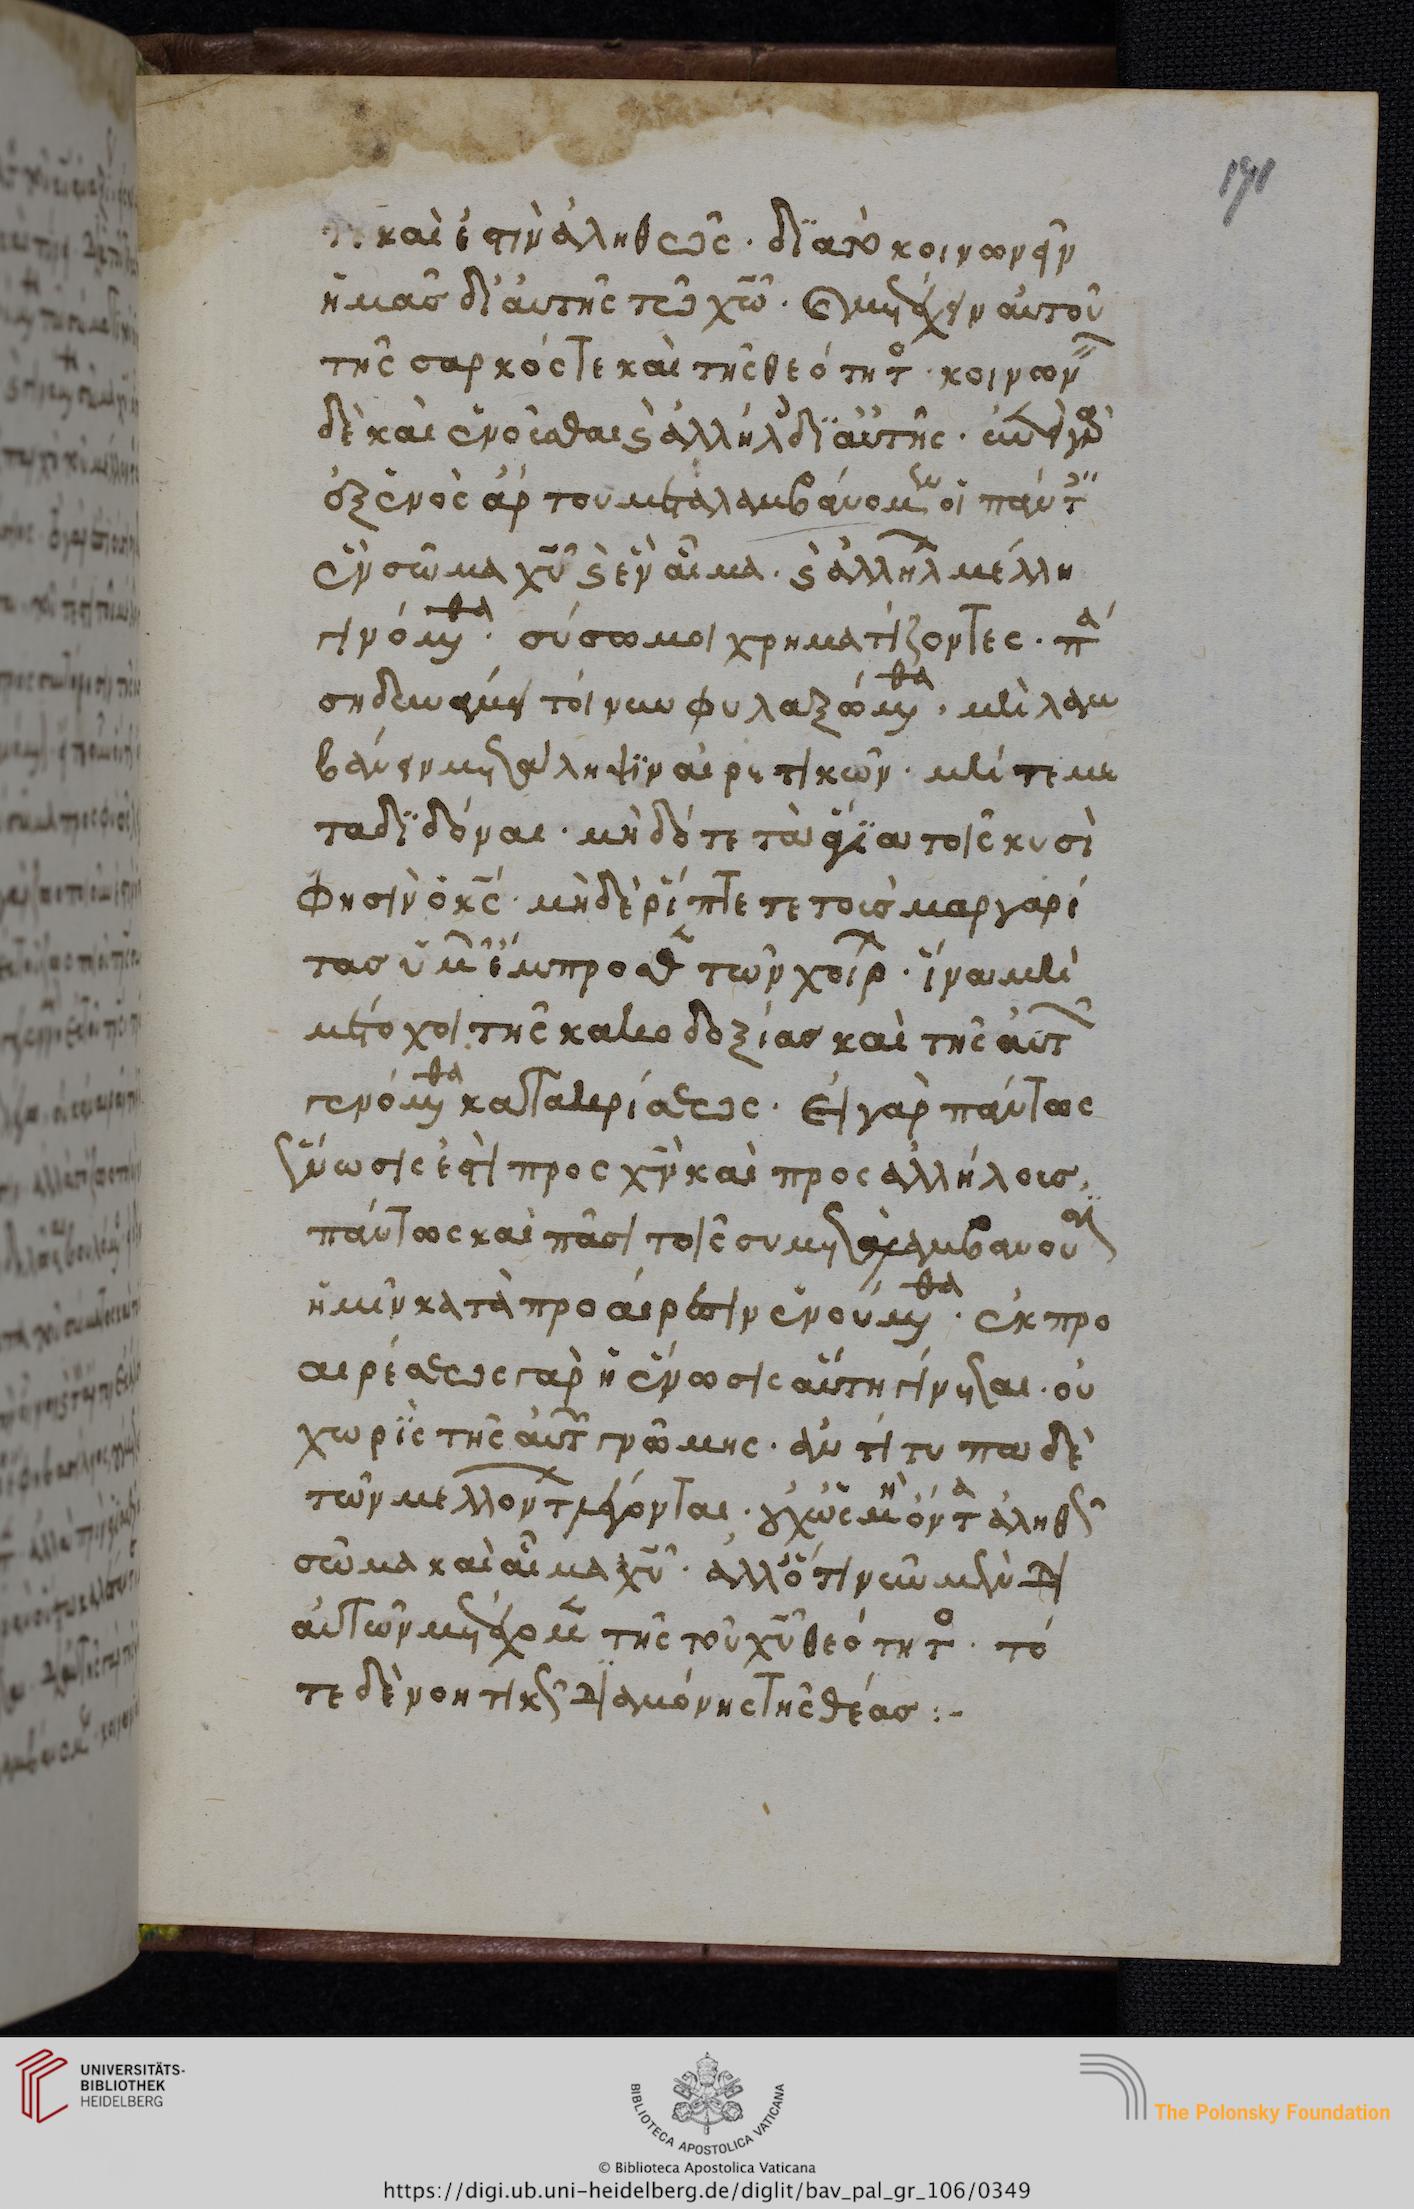 171
τε καὶ ἐστὶν ἀληθῶς· διὰ τὸ κοινωνεῖν
ἡμᾶς δι' αὐτῆς τῶ χω· καὶ μετέχειν αὐτοῦ
τῆς σαρκός τε καὶ τῆς θεότητος· κοινωνεῖν
δὲ καὶ ἑνοῦσθαι καὶ ἀλλήλοις δι' αὐτῆς· ἐπεὶ γὰρ
ἐξ ἑνὸς ἄρτου μεταλαμβάνομεν οἱ πάντες
ἓν σῶμα χυ καὶ ἓν αἷμα· καὶ ἀλλήλων μέλη
γινόμεθα· σύσσωμοι χρηματίζοντες· πά
ση δυνάμει τοίνυν φυλαξώμεθα· μὴ λαμ
βάνειν μετάληψιν αἱρετικῶν· μήτε με
ταδιδόναι· μὴ δότε τὰ ἅγια τοῖς κυσὶ
φησὶν ὁ κς· μὴ δὲ ῥίπτετε τοὺς μαργαρί
τας ὑμῶν ἔμπροσθεν τῶν χοίρων· ἵνα μὴ
μέτοχοι τῆς κακοδοξίας καὶ τῆς αὐτῶν
γενόμεθα κατακρίσεως· εἰ γὰρ πάντως
ἕνωσις ἐστὶ προς χν καὶ προς ἀλλήλους,
πάντως καὶ πᾶσι τοῖς συμμεταλαμβάνουσιν
ἡμῖν κατὰ προαίρεσιν ἑνούμεθα· ἐκ προ
αιρέσεως γὰρ ἡ ἕνωσις αὕτη γίνεται· οὐ
χωρὶς τῆς αὐτῶν γνώμης· ἀντίτυπα δὲ
τῶν μελλόντων λέγονται· οὐχ ὡς μὴ ὄντα ἀληθῶς
σῶμα καὶ αἷμα χυ· ἀλλ' ὅτι νῦν μὲν δι'
αὐτῶν μετέχομεν τῆς τοῦ χυ θεότητος· τό
τε δὲ νοητῶς διὰ μόνης τῆς θέας :-
UNIVERSITÄTS-
BIBLIOTHEK
HEIDELBERG
BIBLIOTECA APOSTOLICA VATICANA
The Polonsky Foundation
© Biblioteca Apostolica Vaticana
https://digi.ub.uni-heidelberg.de/diglit/bav_pal_gr_106/0349